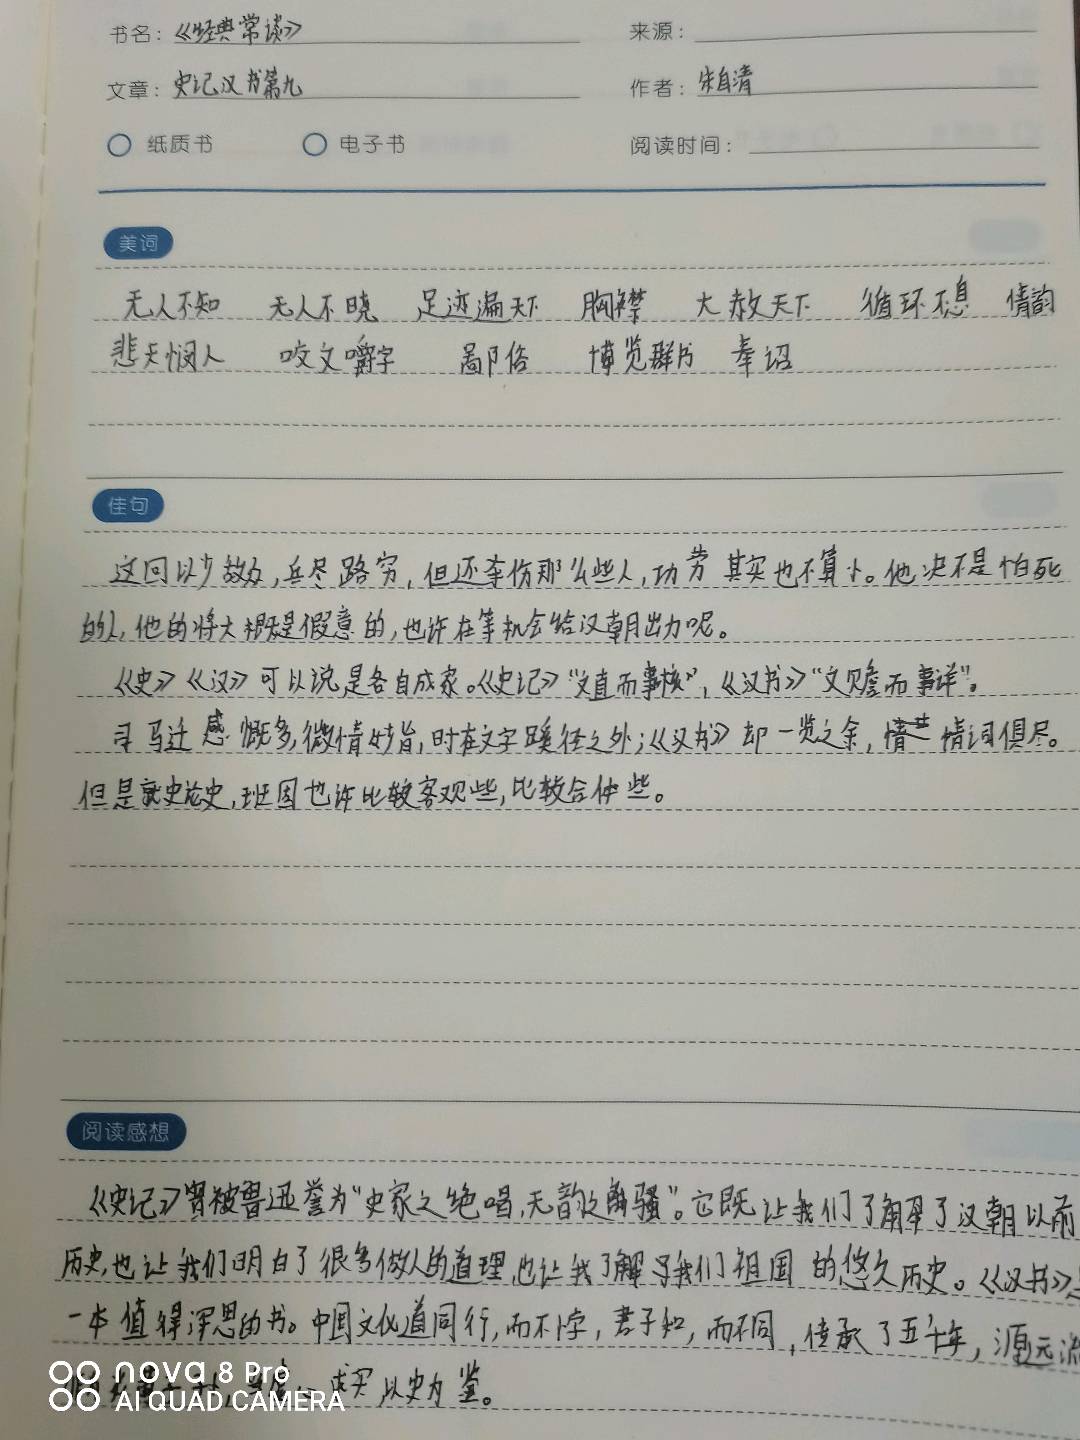 书名：《经典常谈》 来源：
文章：史记汉书第九 作者：朱自清
纸质书 电子书 阅读时间：
美词
无人不知 无人不晓 足迹遍天下 胸襟 大赦天下 循环不息 情韵
悲天悯人 咬文嚼字 鄙俗 博览群书 奉诏
佳句
这回以少敌众，兵尽路穷，但还杀伤那么些人，功劳其实也不算小。他决不是怕死
的人，他的将大概是假意的，也许在等机会给汉朝出力呢。
《史》《汉》可以说是各自成家。《史记》“文直而事核”，《汉书》“文赡而事详”。
司马迁感慨多，微情妙旨，时在文字蹊径之外；《汉书》却一览之余，情词俱尽。
但是就史论史，班固也许比较客观些，比较合体些。
阅读感想
《史记》曾被鲁迅誉为“史家之绝唱，无韵之离骚”。它既让我们了解了汉朝以前
历史，也让我们明白了很多做人的道理，也让我了解了我们祖国的悠久历史。《汉书》是
一本值得深思的书。中国文化道同行，而不悖，君子和，而不同，传承了五千年，源远流
求实 以史为鉴。
nova 8 Pro
AI QUAD CAMERA